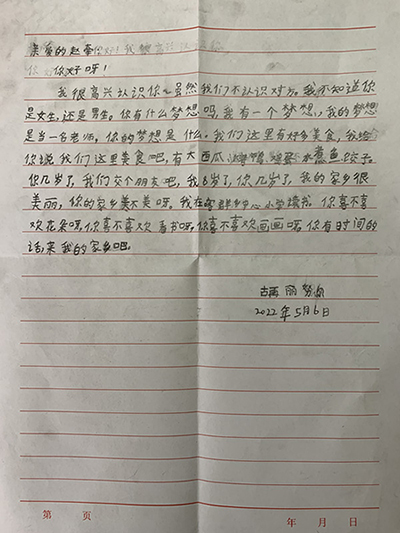 亲爱的赵
你好呀！
我很高兴认识你~虽然我们不认识对方。我不知道你
是女生，还是男生。你有什么梦想吗，我有一个梦想，我的梦想
是当一名老师。你的梦想是什么。我们这里有好多美食，我给
你说我们这里美食吧，有大西瓜 水煮鱼 饺子。
你几岁了，我们交个朋友吧，我 岁了，你几岁了，我的家乡很
美丽，你的家乡美不美呀。我在 群乡中心小学读书。你喜不喜
欢花朵呀，你喜不喜欢看书呀，你喜不喜欢画画呀，你有时间的
话，来我的家乡吧。
古再丽努尔
2022年5月6日
第 页 年 月 日